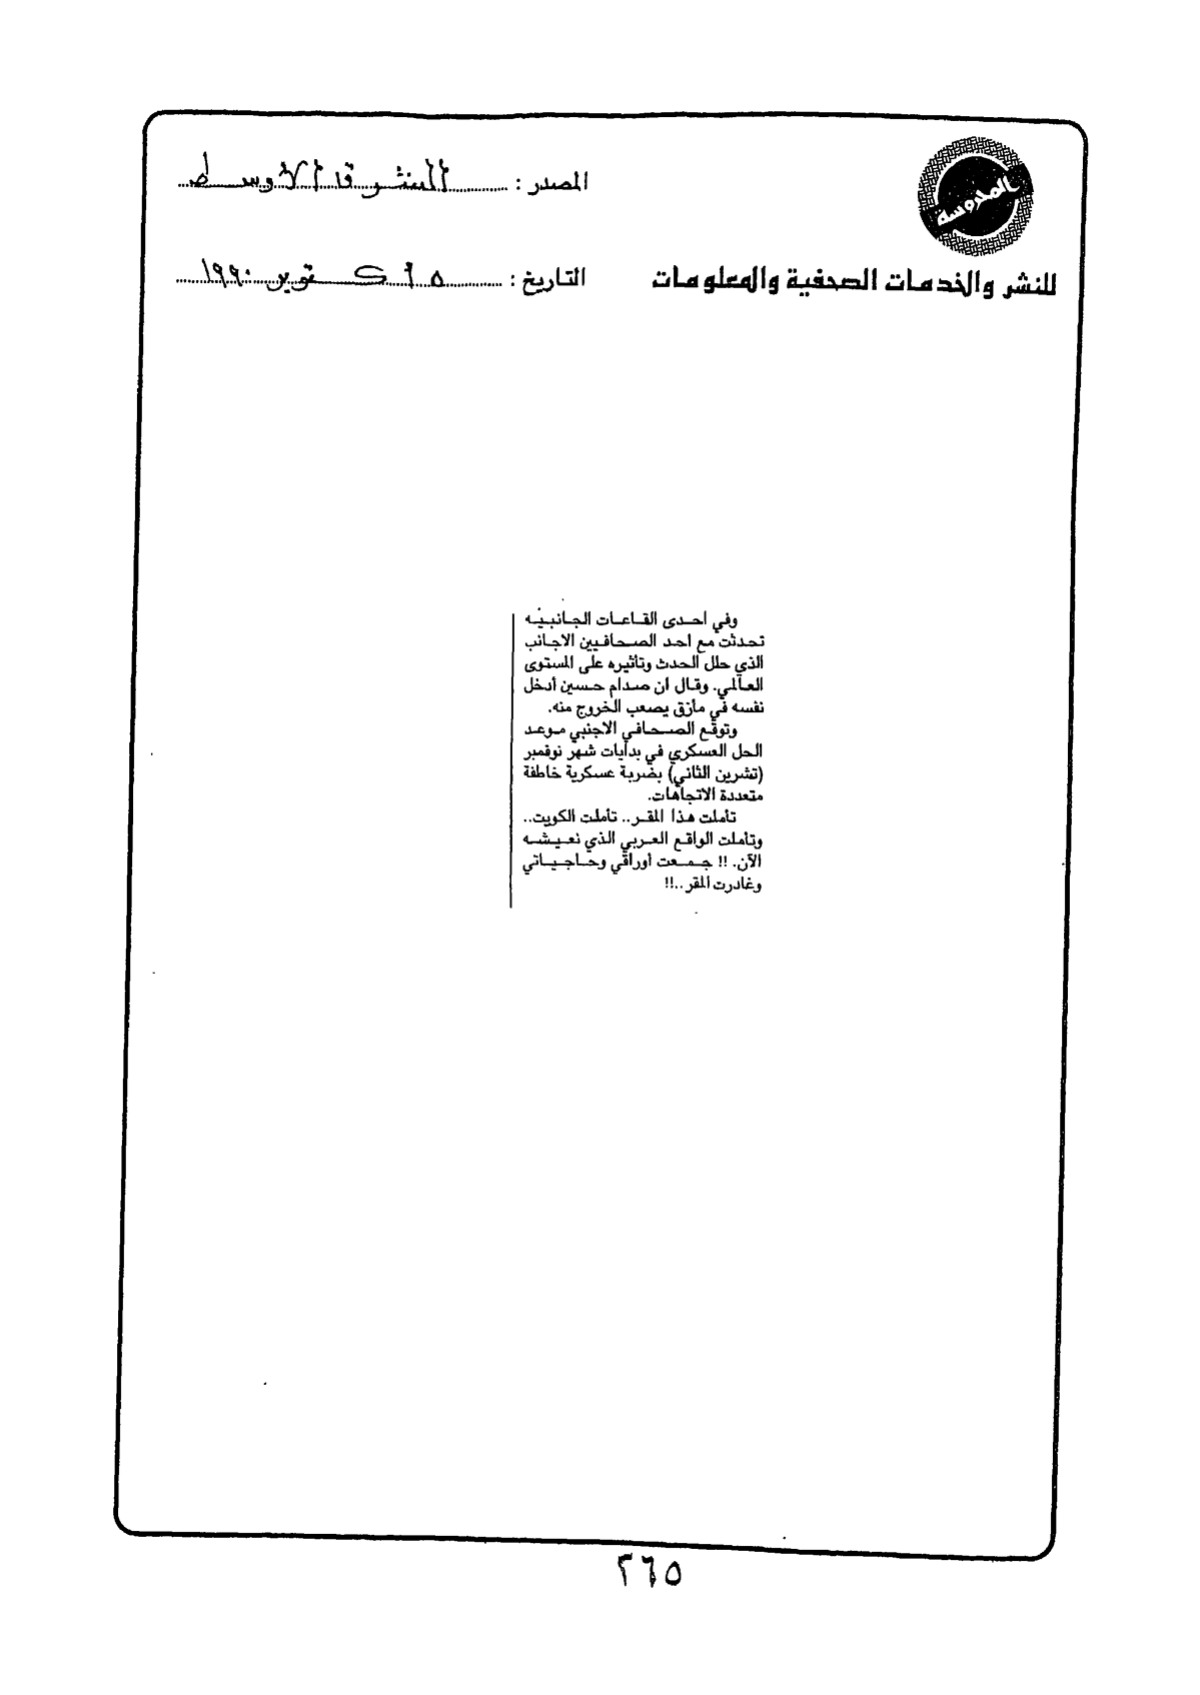 المحروسة
للنشر والخدمات الصحفية والمعلومات
المصدر : الشرق الأوسط
التاريخ : ٥ أكتوبر ١٩٩٠
وفي احدى القاعات الجانبيه
تحدثت مع احد الصحافيين الاجانب
الذي حلل الحدث وتأثيره على المستوى
العالمي. وقال ان صدام حسين أدخل
نفسه في مأزق يصعب الخروج منه.
وتوقع الصحافي الاجنبي موعد
الحل العسكري في بدايات شهر نوفمبر
(تشرين الثاني) بضربة عسكرية خاطفة
متعددة الاتجاهات.
تأملت هذا المقر.. تأملت الكويت..
وتأملت الواقع العربي الذي نعيشه
الآن. !! جمعت أوراقي وحاجياتي
وغادرت المقر..!!
٢٦٥